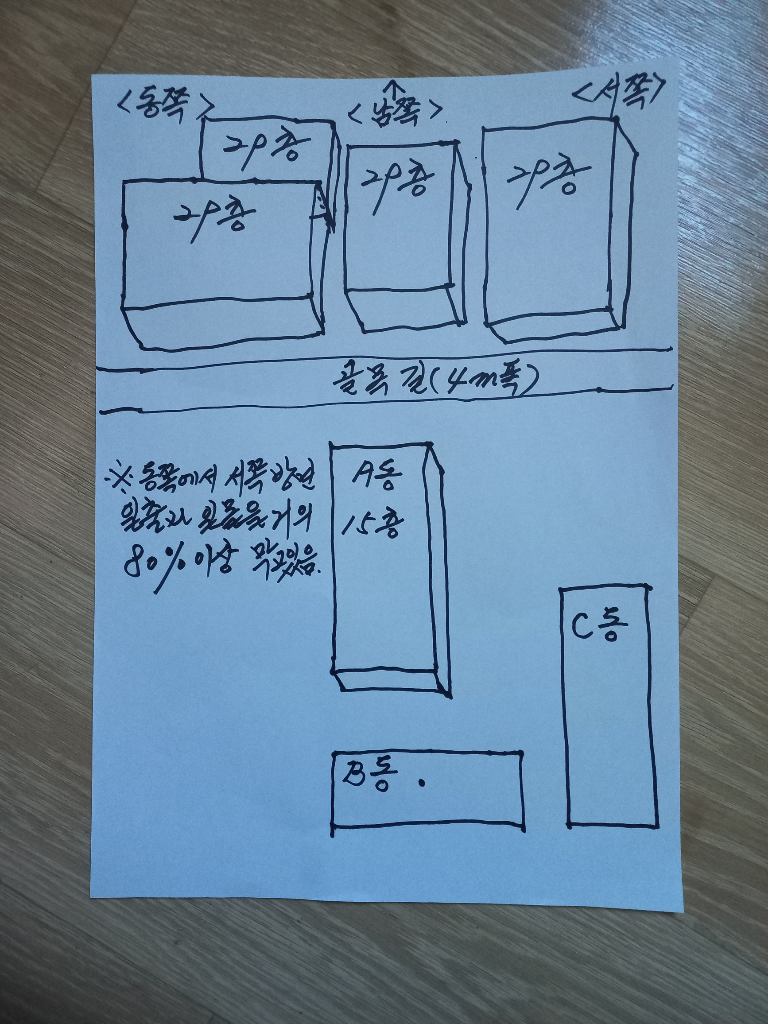 <동쪽> <남쪽> <서쪽>
29층
29층
29층
29층
골목길(4m폭)
※ 동쪽에서 서쪽 방면
일출과 일몰을 거의
80% 이상 막고있음.
A동
15층
C동
B동